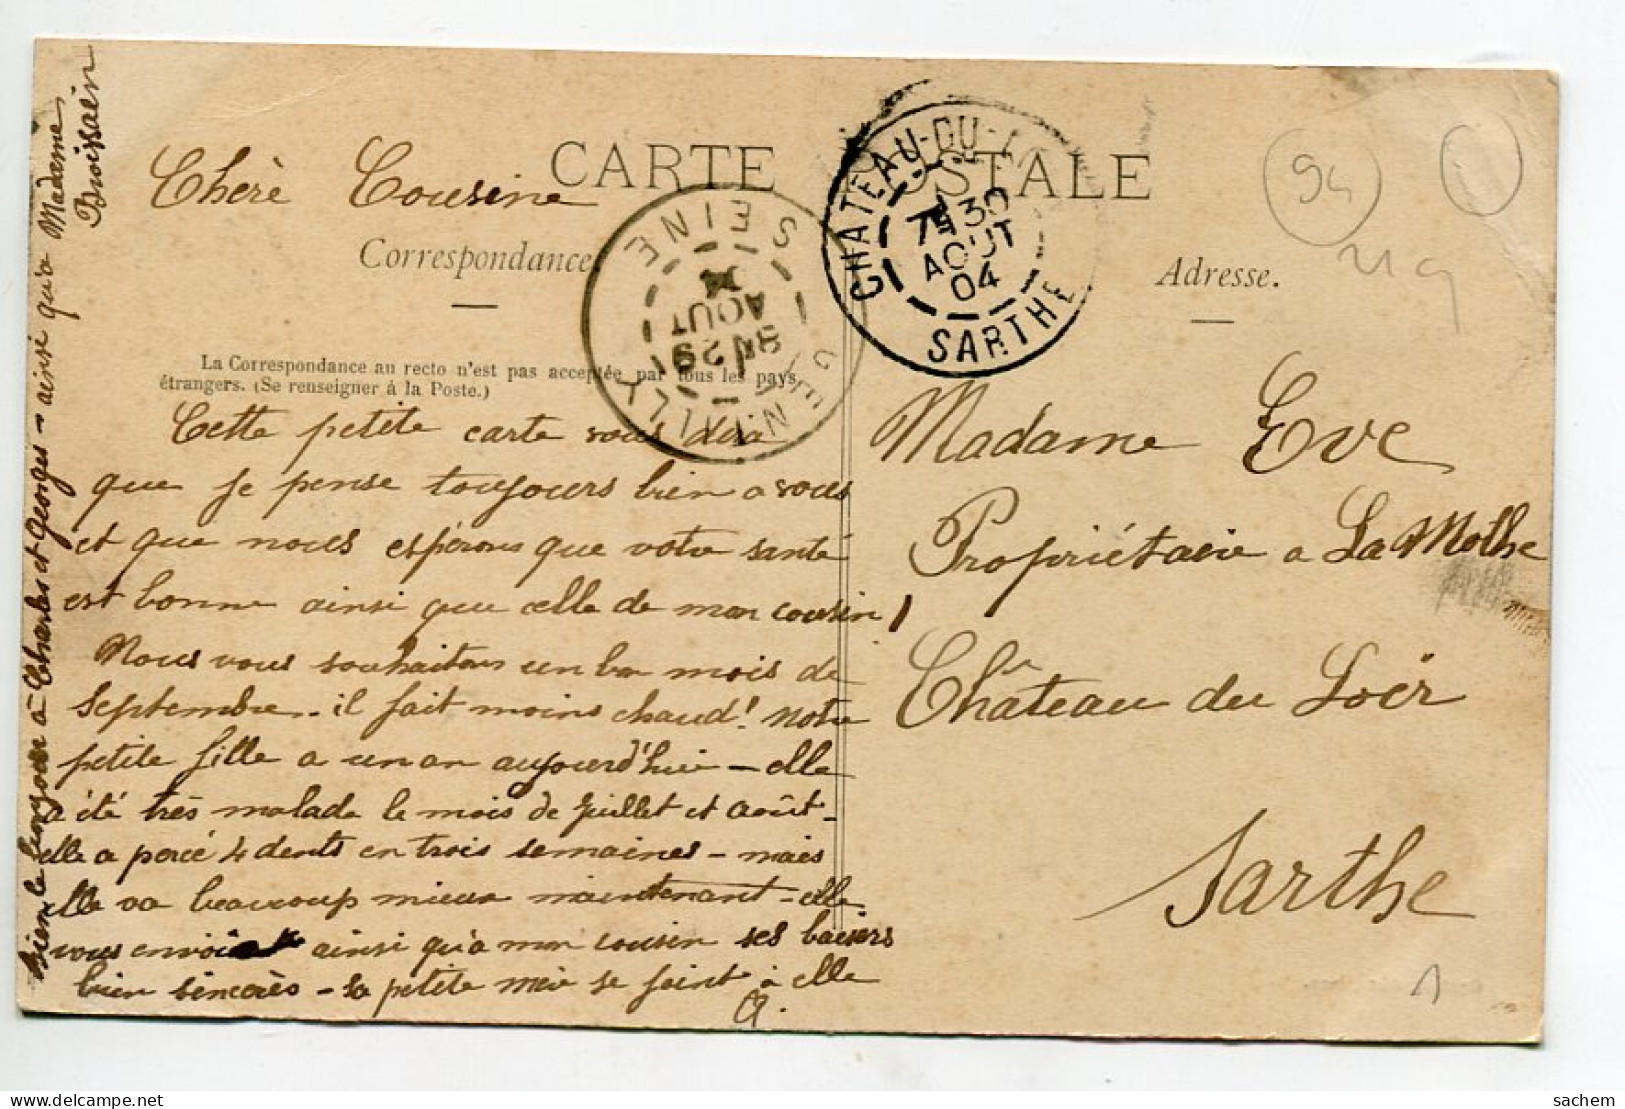 CARTE POSTALE
Chère Cousine
Correspondance
Adresse.
La Correspondance au recto n'est pas acceptée par tous les pays
étrangers. (Se renseigner à la Poste.)
Cette petite carte vous dira
que je pense toujours bien a vous
et que nous espérons que votre santé
est bonne ainsi que celle de mon cousin!
Nous vous souhaitons un bon mois de
Septembre - il fait moins chaud! notre
petite fille a un an aujourd'hui - elle
a été très malade le mois de Juillet et Août -
elle a percé 4 dents en trois semaines - mais
elle va beaucoup mieux maintenant - elle
vous envoie ainsi qu'a mon cousin ses baisers
bien sincères - sa petite mère se joint à elle
a.
Bien le bonjour à Charles et Georges - ainsi qu'a Madame
GENTILLY
SEINE
8 29
AOUT
04
CHATEAU-DU-L
7 30
AOUT
04
SARTHE
Madame Eve
Propriétaire a La Mothe
Château du Loir
Sarthe
94
219
1
sachem